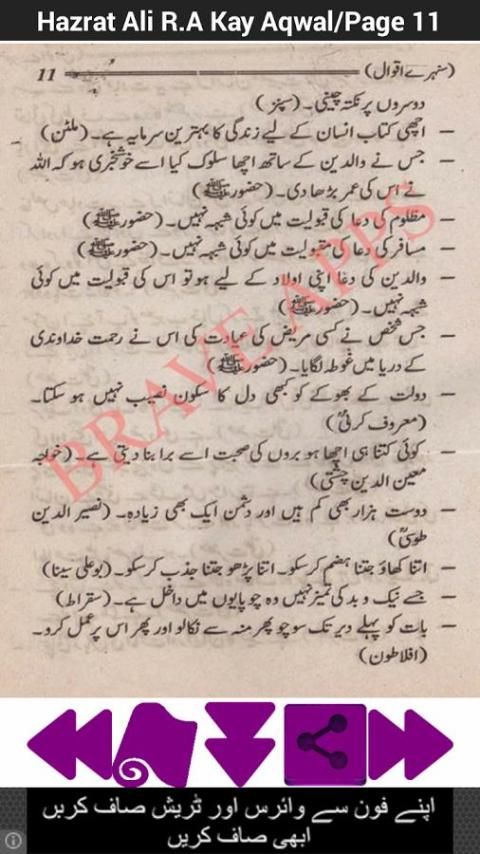 Hazrat Ali R.A Kay Aqwal/Page 11
(سنہرے اقوال) 11
دوسروں پر نکتہ چینی۔ (سپنز)
– اچھی کتاب انسان کے لیے زندگی کا بہترین سرمایہ ہے۔ (ملٹن)
– جس نے والدین کے ساتھ اچھا سلوک کیا اسے خوشخبری ہو کہ اللہ
نے اس کی عمر بڑھا دی۔ (حضورﷺ)
– مظلوم کی دعا کی قبولیت میں کوئی شبہ نہیں۔ (حضورﷺ)
– مسافر کی دعا کی مقبولیت میں کوئی شبہ نہیں۔ (حضورﷺ)
– والدین کی دعا اپنی اولاد کے لیے ہو تو اس کی قبولیت میں کوئی
شبہ نہیں۔ (حضورﷺ)
– جس شخص نے کسی مریض کی عیادت کی اس نے رحمت خداوندی
کے دریا میں غوطہ لگایا۔ (حضورﷺ)
– دولت کے بھوکے کو کبھی دل کا سکون نصیب نہیں ہو سکتا۔
(معروف کرخیؒ)
– کوئی کتنا ہی اچھا ہو بروں کی صحبت اسے برا بنا دیتی ہے۔ (خواجہ
معین الدین چشتیؒ)
– دوست ہزار بھی کم ہیں اور دشمن ایک بھی زیادہ۔ (نصیر الدین
طوسیؒ)
– اتنا کھاؤ جتنا ہضم کر سکو۔ اتنا پڑھو جتنا جذب کر سکو۔ (بوعلی سینا)
– جسے نیک و بد کی تمیز نہیں وہ چوپایوں میں داخل ہے۔ (سقراط)
– بات کو پہلے دیر تک سوچو پھر منہ سے نکالو اور پھر اس پر عمل کرو۔
(افلاطون)
BRAVE APPS
اپنے فون سے وائرس اور ٹریش صاف کریں
ابھی صاف کریں